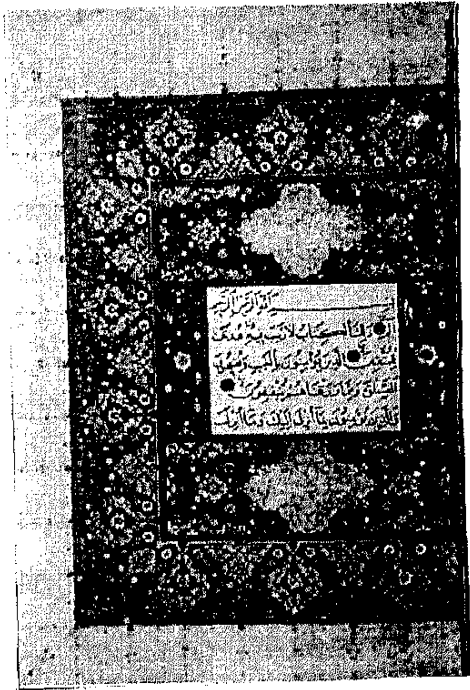 بسم الله الرحمن الرحيم
الم ذلك الكتاب لا ريب فيه هدى
للمتقين الذين يؤمنون بالغيب ويقيمون
الصلوة ومما رزقناهم ينفقون
والذين يؤمنون بما أنزل إليك وما أنزل